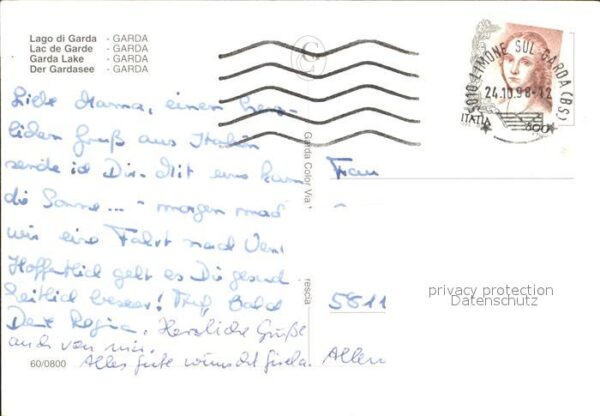 Lago di Garda - GARDA
Lac de Garde - GARDA
Garda Lake - GARDA
Der Gardasee - GARDA
Liebe Mama, einen herz-
lichen Gruß aus Italien
sende ich Dir. Mit uns kam
die Sonne... - morgen
wir eine Fahrt nach Ven
Hoffentlich geht es Dir gesund
heitlich besser! Bald
Deine Regina. Herzliche Grüße
auch von mir.
Alles Gute wünscht Gisela.
60/0800
Garda Color Via
rescia
Frau
5811
Allen
privacy protection
Datenschutz
LIMONE SUL GARDA (BS)
24.10.98-12
ITALIA
800